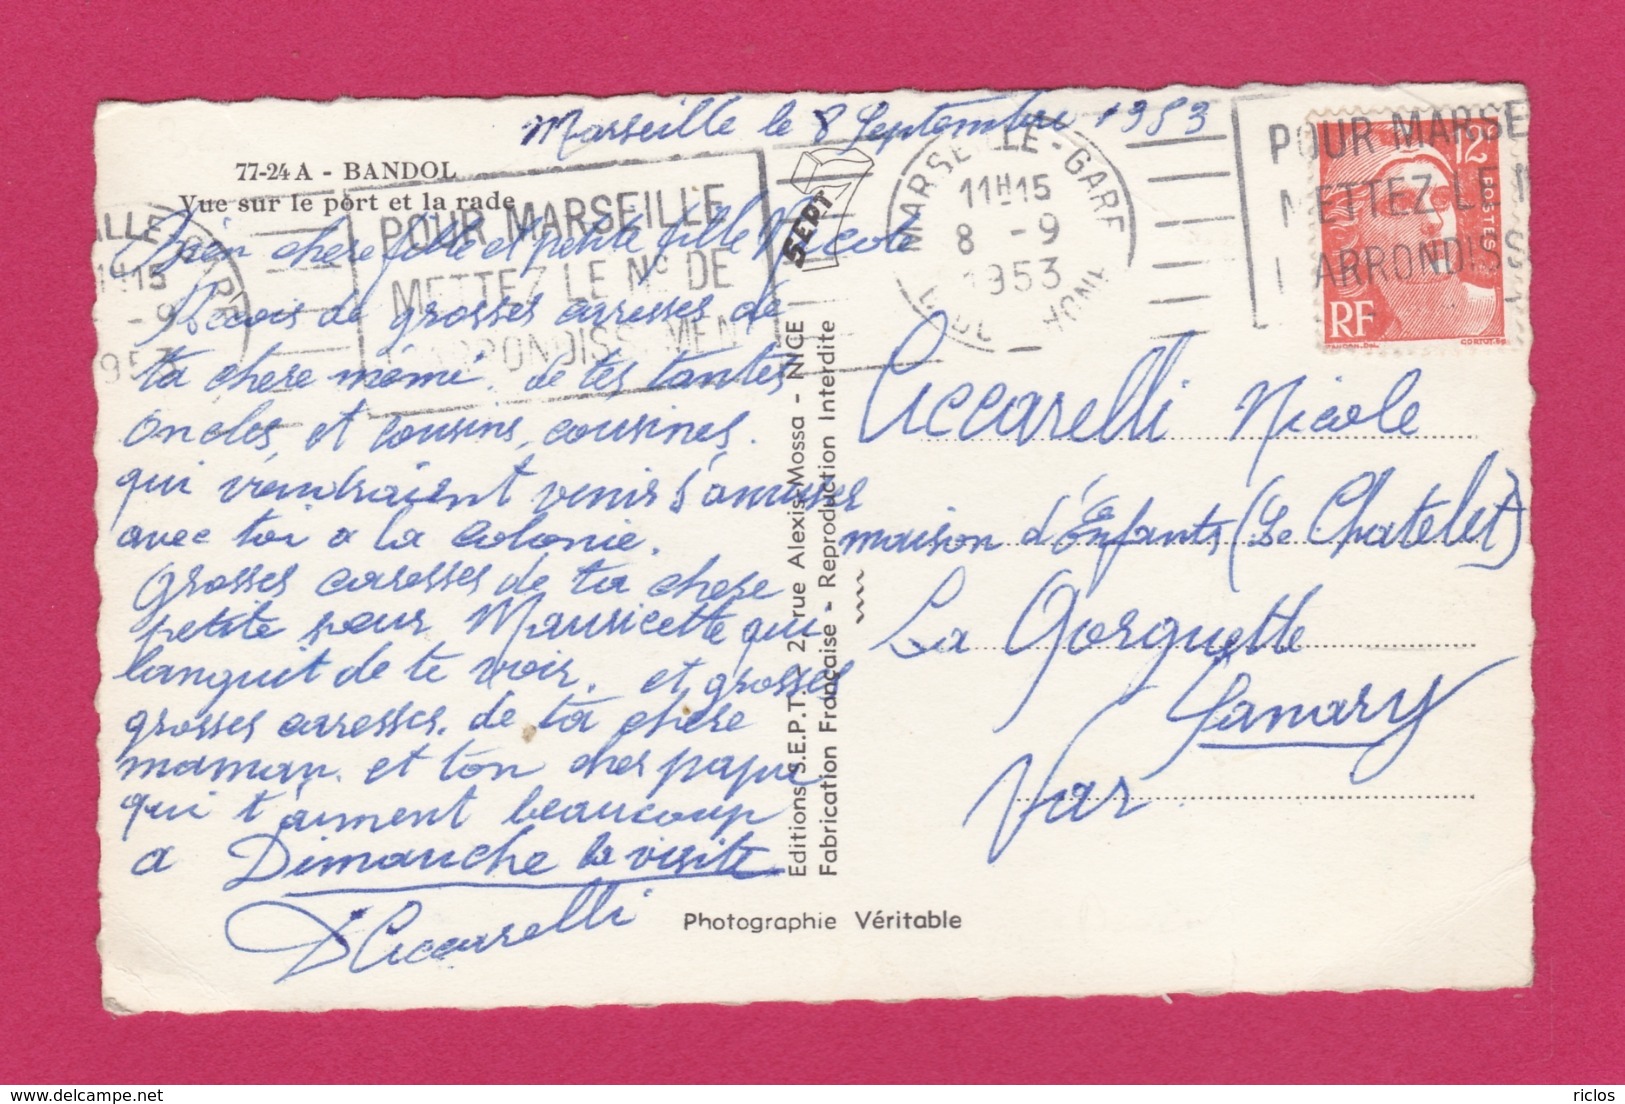 Marseille le 8 Septembre 1953
77-24 A - BANDOL
Vue sur le port et la rade
POUR MARSEILLE
METTEZ LE No DE
L'ARRONDISSEMENT
SEPT
MARSEILLE-GARE
11H15
8 -9
1953
POUR MARSE
METTEZ LE N
L'ARRONDISS
12F
POSTES
RF
GANDON.DEL.
CORTOT.SC
bien chere fille et petite fille Nicole
Recois de grosses caresses de
ta chere mémé. de tes tantes
oncles, et cousins, cousines.
qui viendraient venir s'amuser
avec toi a la colonie.
grosses caresses de ta chere
petite sœur Mauricette qui
languit de te voir. et grosses
grosses caresses. de ta chere
maman. et ton cher papa
qui t'aiment beaucoup
a Dimanche la visite
Ciccarelli
Editions S.E.P.T. - 22, rue Alexis Mossa - NICE
Fabrication Française - Reproduction Interdite
Photographie Véritable
Ciccarelli Nicole
maison d'Enfants (Le Chatelet)
La Gorguette
Sanary
Var
delcampe.net
riclos